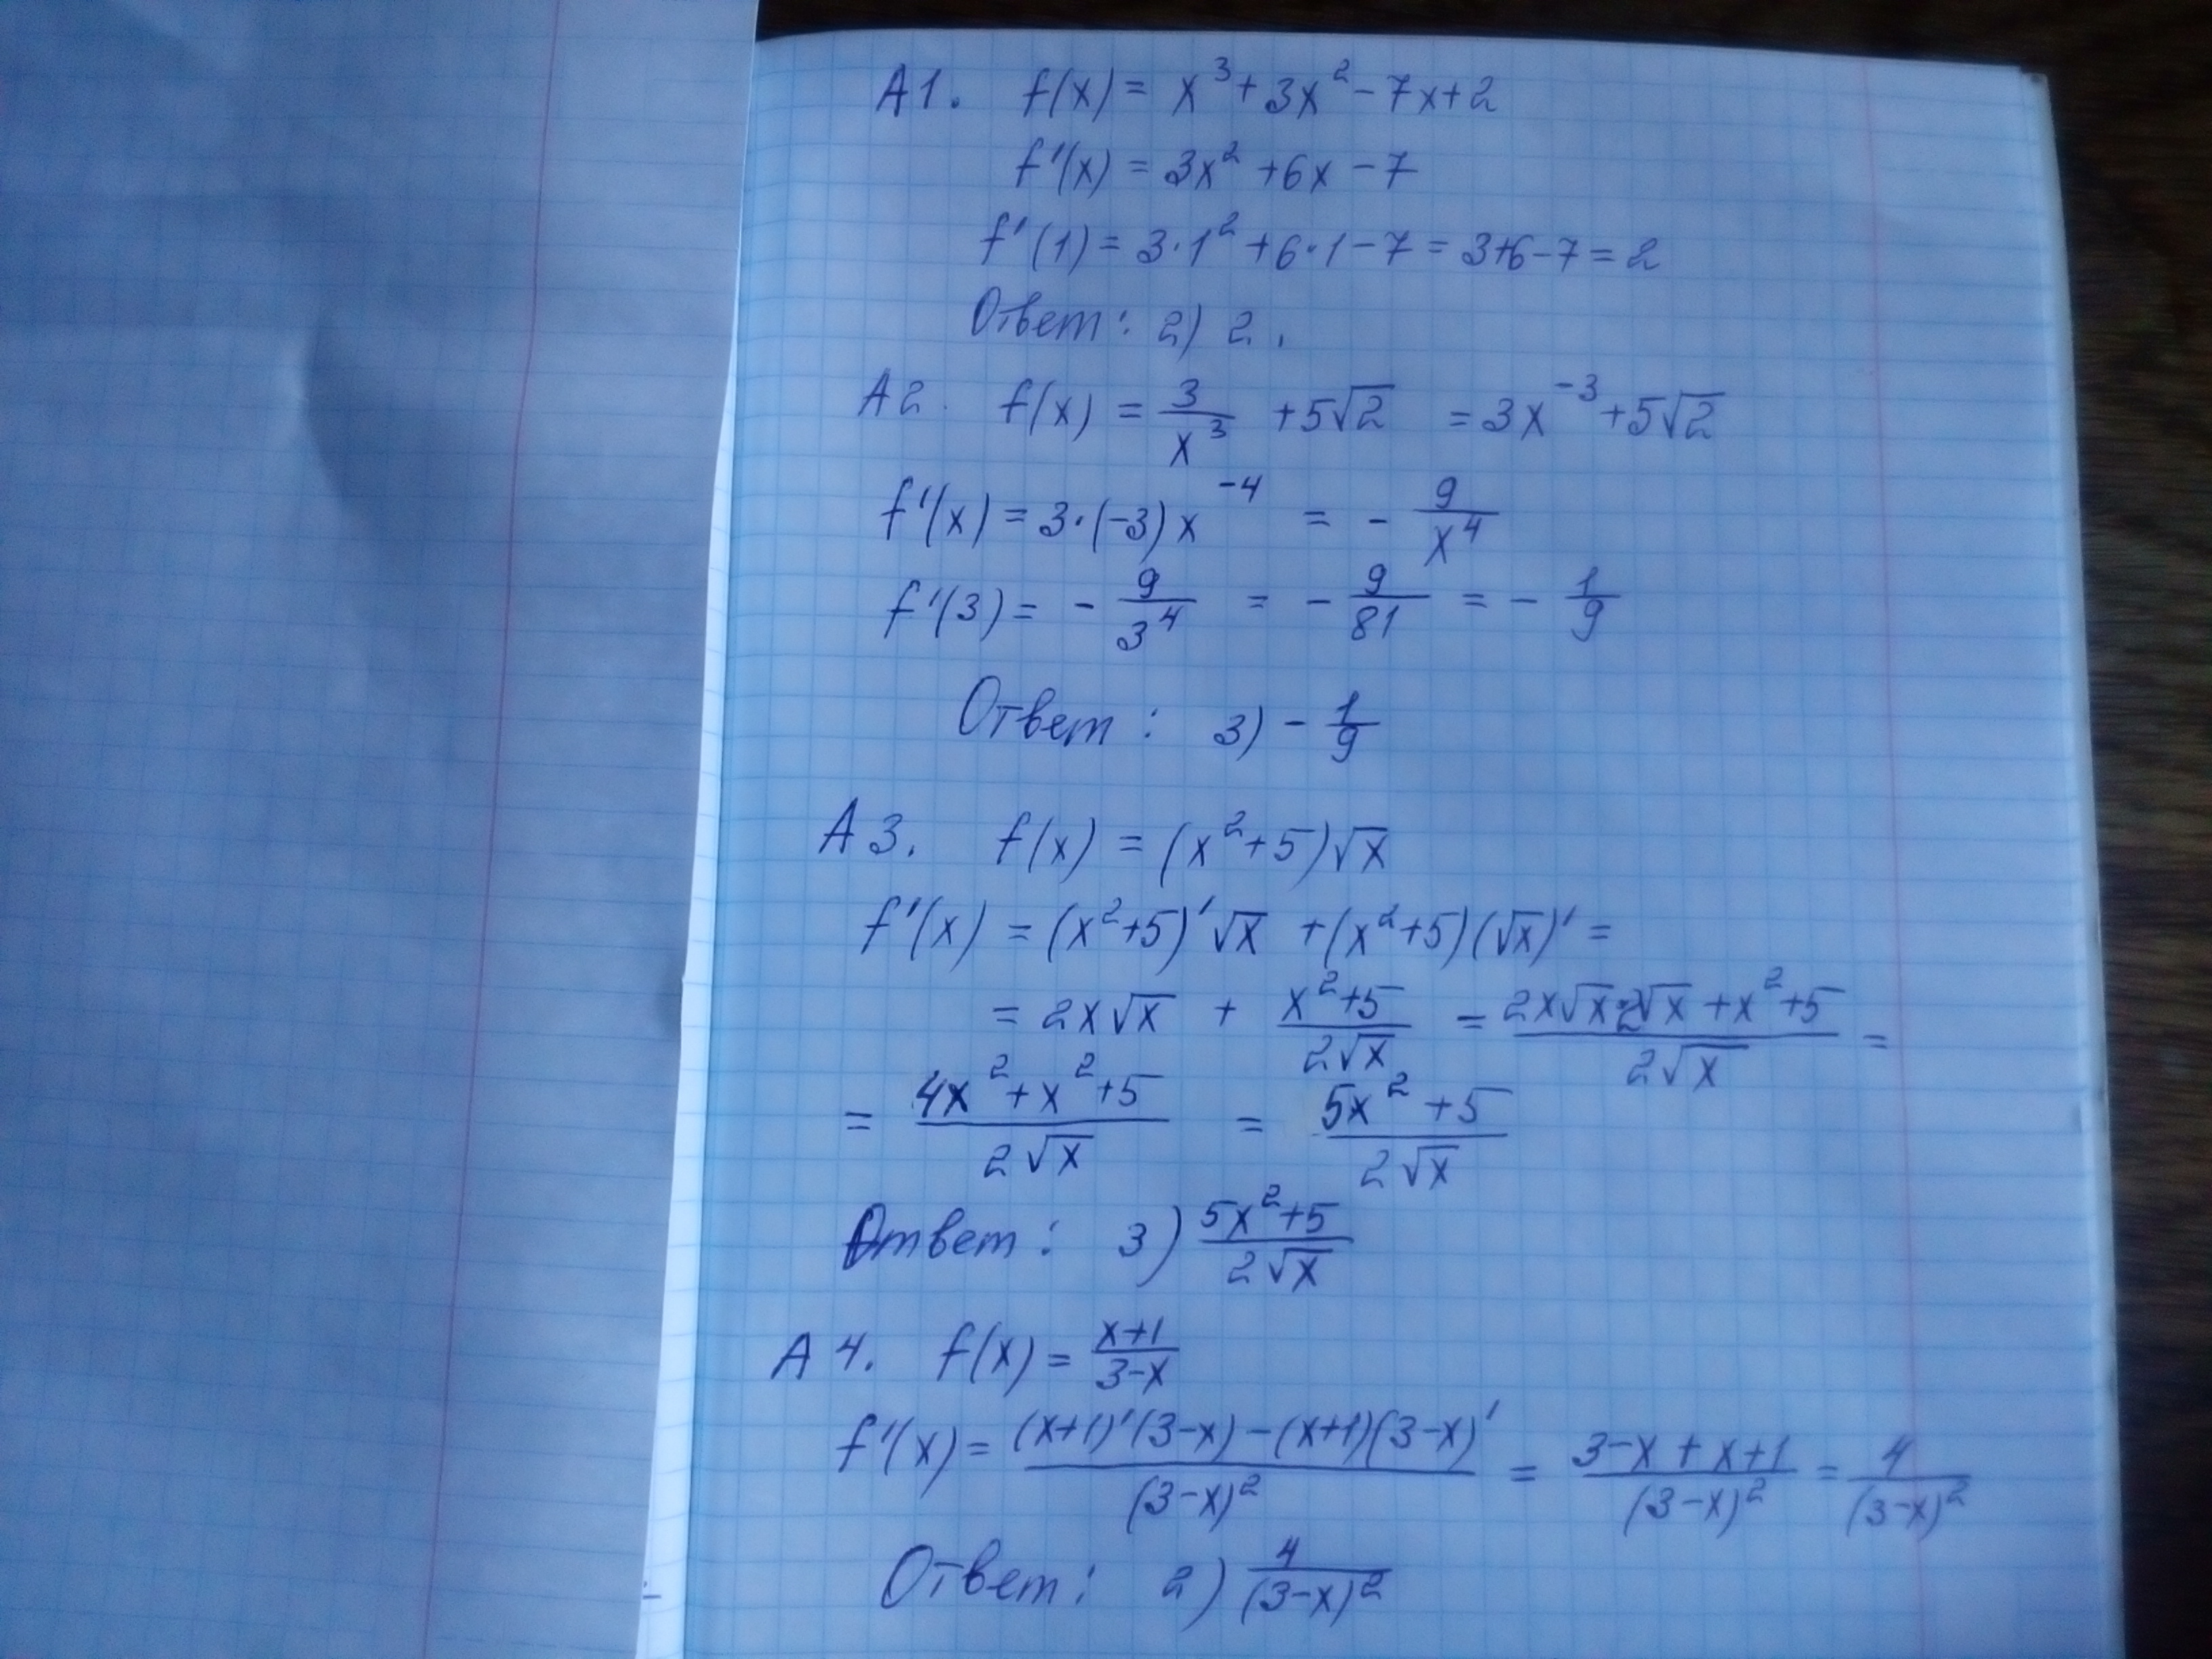 A1. f(x) = x³+3x²-7x+2
f'(x) = 3x²+6x-7
f'(1) = 3·1²+6·1-7 = 3+6-7 = 2
Ответ: 2) 2.
A2. f(x) = 3/x³ +5√2 = 3x⁻³+5√2
f'(x) = 3·(-3)x⁻⁴ = - 9/x⁴
f'(3) = - 9/3⁴ = - 9/81 = - 1/9
Ответ: 3) - 1/9
A3. f(x) = (x²+5)√x
f'(x) = (x²+5)'√x +(x²+5)(√x)' =
= 2x√x + (x²+5)/(2√x) = (2x√x·2√x+x²+5)/(2√x) =
= (4x²+x²+5)/(2√x) = (5x²+5)/(2√x)
Ответ: 3) (5x²+5)/(2√x)
A4. f(x) = (x+1)/(3-x)
f'(x) = ((x+1)'(3-x)-(x+1)(3-x)')/(3-x)² = (3-x+x+1)/(3-x)² = 4/(3-x)²
Ответ: 2) 4/(3-x)²